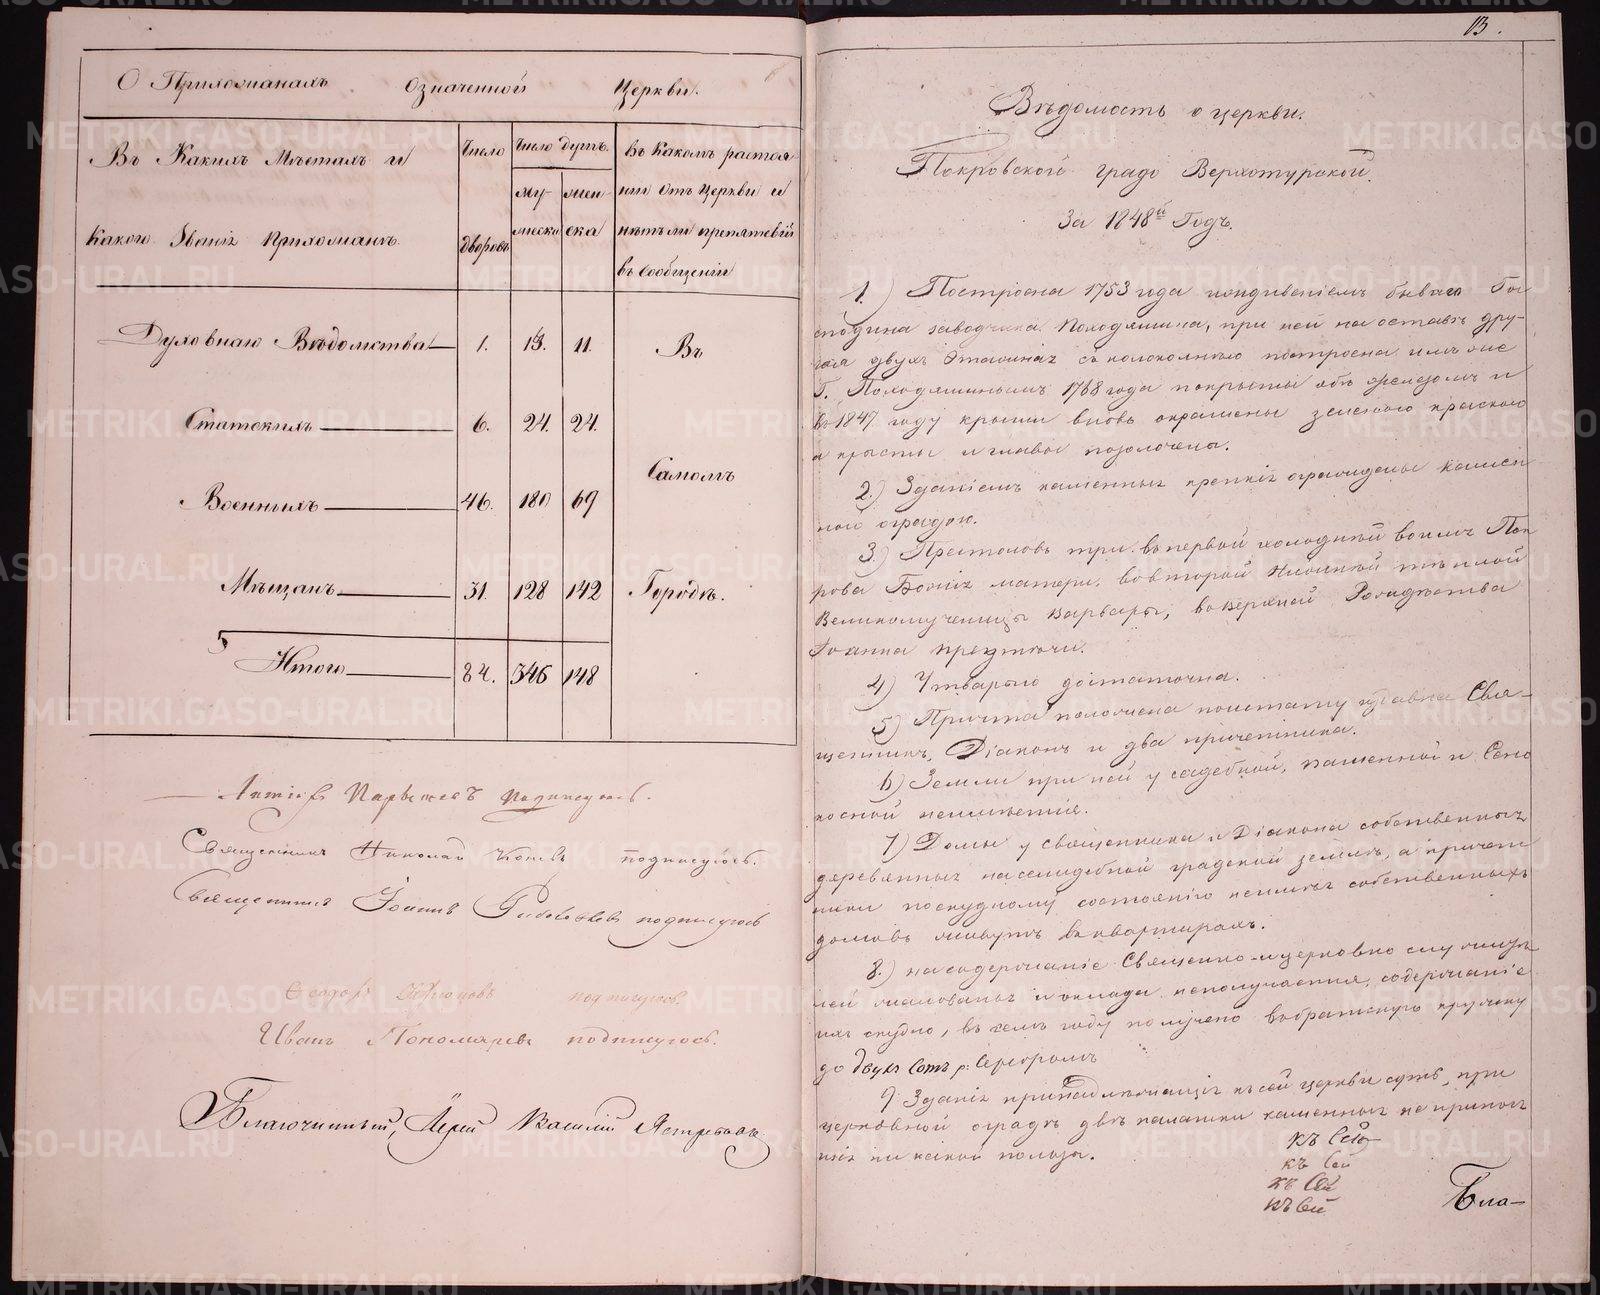 О Прихожанахъ означенной Церкви.
Въ Какихъ Мѣстахъ и
Какого Званія Прихожанъ.
Число
дворовъ
Число душъ.
му-
жеска
жен-
ска
Въ Какомъ растоя-
ніи Отъ Церкви и
нѣтъ ли препятствій
въ сообщеніи
Духовнаго Вѣдомства 1. 13. 11. Въ
Статскихъ 6. 24. 24.
Самомъ
Военныхъ 46. 180 69
Мѣщанъ 31. 128 142 Городѣ.
Итого 84. 346 148
подписуюсь.
Священникъ Николай подписуюсь.
Священникъ Іоаннъ подписуюсь
Ѳеодоръ подписуюсь.
Иванъ Пономаревъ подписуюсь.
Благочинный, Іерей Василій Ястребовъ
13.
Вѣдомость о церкви.
Покровской градо Верхотурской.
За 1848й Годъ.
1.) Построена 1753 года иждивеніемъ бывшаго Гос-
подина заводчика Походяшина, при ней на оставъ дру-
гая двухъ этажная съ колокольнею построена имъ же
Г. Походяшинымъ 1768 года покрыты обѣ желѣзомъ и
въ 1847 году крыши вновь окрашены зеленою краскою
а кресты и главы позолочены.
2.) Зданіемъ каменныя крепкія ограждены камен-
ной оградою.
3.) Престоловъ три. въ первой холодной во имя Пок-
рова Божія матери, во второй нижней теплой
Великомученицы Варвары, въ верхней Рождества
Іоанна предтечи.
4) Утварью достаточна.
5) Причта положена по штату издавна Свя-
щенникъ, Діаконъ и два причетника.
6) Земли при ней усадебной, пашенной и Сено-
косной неимѣется.
7) Домы у священника и Діакона собственныя
деревянныя на селидебной градской землѣ, а причет-
ники поскудному состоянію неимѣя собственныхъ
домовъ живутъ въ квартирахъ.
8.) на содержаніе Священно-и церковно служите-
лей жалованья и оклада неполучается, содержаніе
ихъ скудно, въ семъ году получено въ братскую кружку
до двухъ Сотъ р: Серебромъ
9 Зданія принадлежащія къ сей церкви суть, при
церковной оградѣ двѣ палатки каменныя не принося
щія ни какой пользы.
къ Сей
къ Сей
къ Сей
къ Сей
Бла-
METRIKI.GASO-URAL.RU